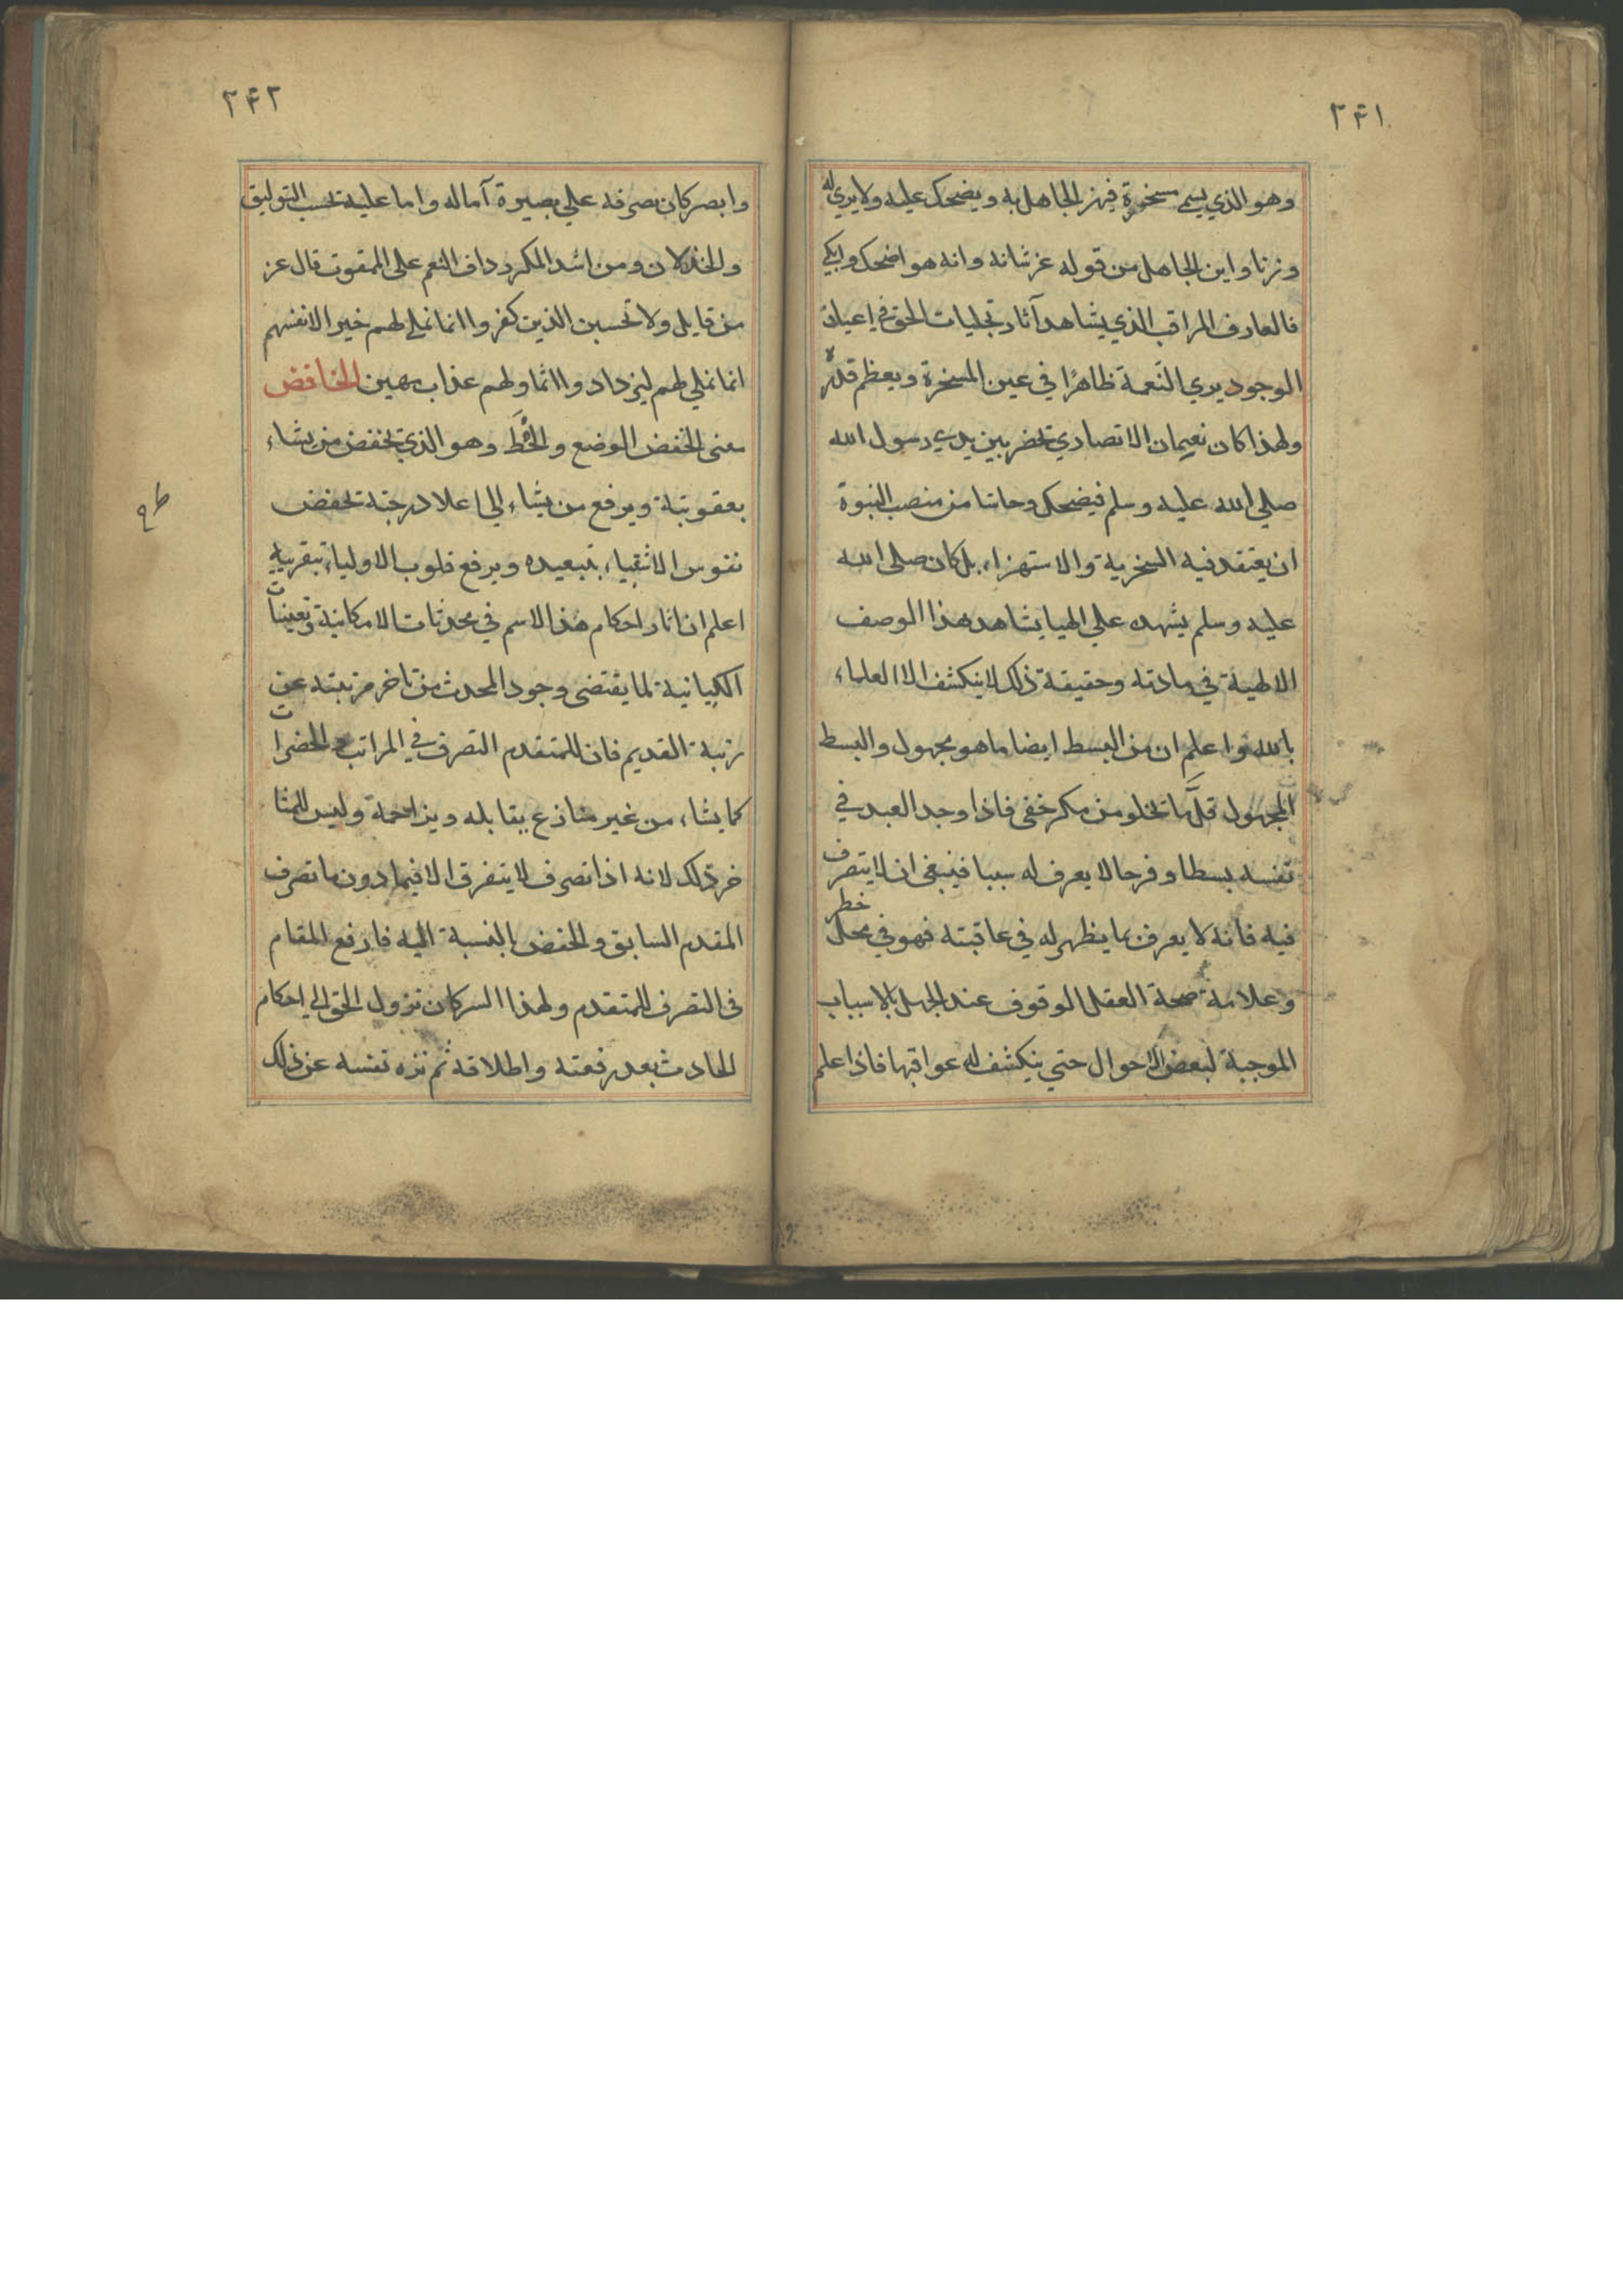 ٢٤١
وهو الذي يسمي مسخرة فيهز الجاهل به ويضحك عليه ولا يري له
وزنا واين الجاهل من قوله عز شانه وانه هو اضحك وابكي
فالعارف المراقب الذي يشاهد آثار تجليات الحق في اعيان
الوجود يري النعمة ظاهرًا في عين المسخرة ويعظم قدره
ولهذا كان نعيمان الانصاري يحضر بين يدي رسول الله
صلي الله عليه وسلم فيضحك وحاشا من منصب النبوة
ان يعتقد فيه السخرية والاستهزاء بل كان صلى الله
عليه وسلم يشهده علي الهيا يشاهد هذا الوصف
الالهية في مادته وحقيقة ذلك لا ينكشف الا العلماء
بالله واعلم ان من البسط ايضا ما هو مجهول والبسط
المجهول قلَّما تخلو من مكر خفي فاذا وجد العبد في
نفسه بسطا وفرحا لا يعرف له سببا فينبغي ان لا يتصرف
فيه فانه لا يعرف بما يظهر له في عاقبته فهو في محل خطر
وعلامة صحة العقل الوقوف عند الجهل بالاسباب
الموجبة لبعض الاحوال حتي ينكشف له عواقبها فاذا علم
٢٤٢
وابصر كان تصرفه علي بصيرة آماله واما عليه بحسب التوفيق
والخذلان ومن اشد المكر رداف النعم على الممقوت قال عز
من قايل ولا تحسبن الذين كفروا انما نملي لهم خير الانفسهم
انما نملي لهم ليزدادوا اثما ولهم عذاب مهين الخافض
معنى الخفض الوضع والحَطّ وهو الذي يخفض من يشاء
بعقوبته ويرفع من يشاء الي اعلا درجته يخفض
نفوس الاشقياء بتبعيده ويرفع قلوب الاولياء بتقريبه
اعلم ان اثار احكام هذا الاسم في محدثات الامكانية وتعينات
الكيانية لما يقتضي وجود المحدث من تاخر مرتبته عن
رتبة القديم فان للمتقدم التصرف في المراتب والحضرات
كما يشاء من غير منازع يقابله ويزاحمة وليس للمتا
خر ذلك لانه اذا تصرف لا يتفرق الا فيما دون ما تصرف
المقدم السابق والخفض بالنسبة اليه فارفع المقام
في التصرف للمتقدم ولهذا السر كان نزول الحق الي احكام
الحادث بعد رفعته واطلاقه ثم نزه نفسه عن ذلك